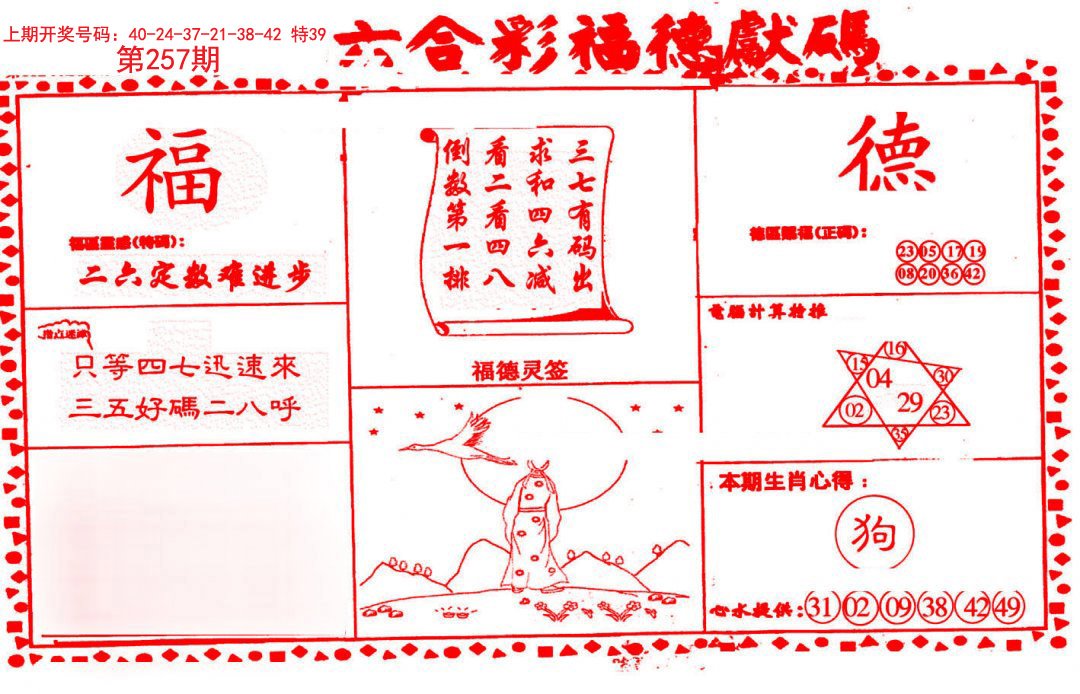 上期开奖号码：40-24-37-21-38-42 特39
第257期
六合彩福德獻碼
福
福區靈感(特碼)：
二六定数难进步
指点迷津
只等四七迅速來
三五好碼二八呼
三七有码出
求和四六减
看二看四八
倒数第一排
福德灵签
德
德區賜福(正碼)：
23 05 17 19
08 20 36 42
電腦計算特推
16
15
30
04
29
02
23
35
本期生肖心得：
狗
心水提供：31 02 09 38 42 49